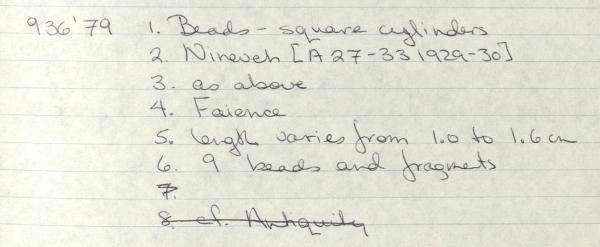 936'79 1. Beads - square cylinders
2. Nineveh [A 27-33 1929-30]
3. as above
4. Faience
5. length varies from 1.0 to 1.6 cm
6. 9 beads and fragments
7.
8. cf. Antiquity